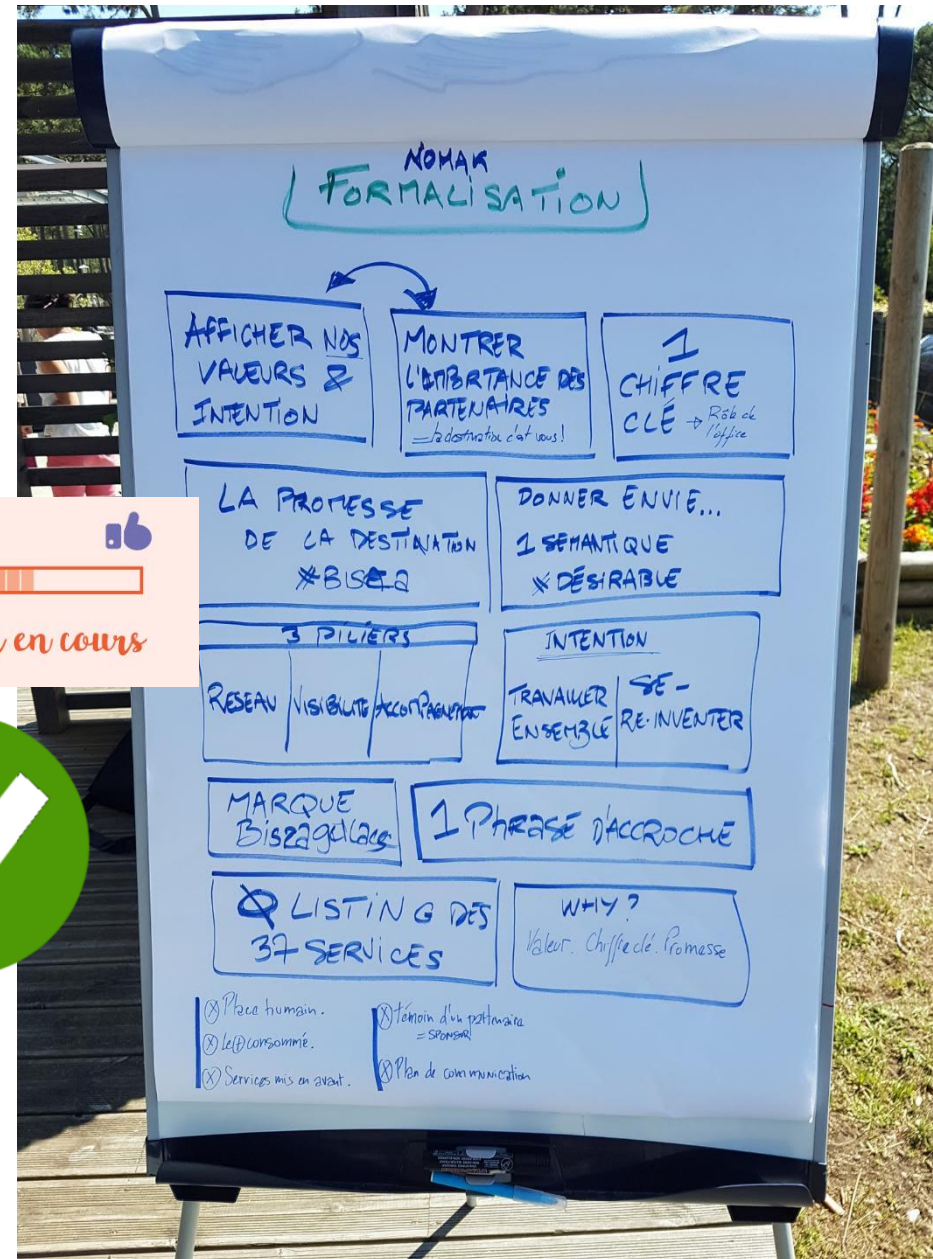 NOMAK
FORMALISATION
AFFICHER NOS
VALEURS &
INTENTION
MONTRER
L'IMPORTANCE DES
PARTENAIRES
= la destination c'est vous!
1
CHIFFRE
CLÉ → Rôle de
l'office
LA PROMESSE
DE LA DESTINATION
DONNER ENVIE...
1 SEMANTIQUE
DÉSIRABLE
en cours
3 PILIERS
RESEAU
VISIBILITE
ACCOMPAGNEMENT
INTENTION
TRAVAILLER
ENSEMBLE
SE-
RE-INVENTER
MARQUE
1 PHRASE D'ACCROCHE
LISTING DES
37 SERVICES
WHY?
Valeur. Chiffre clé. Promesse
Place humain.
Le (+) consommé.
Services mis en avant.
témoin d'un partenaire
= SPONSOR
Plan de communication